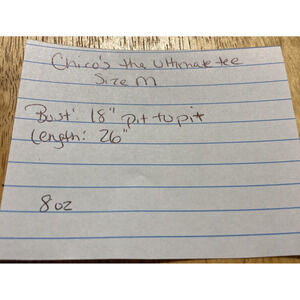 Chico's the Ultimate tee
Size M
Bust: 18" pit to pit
Length: 26"
8 oz